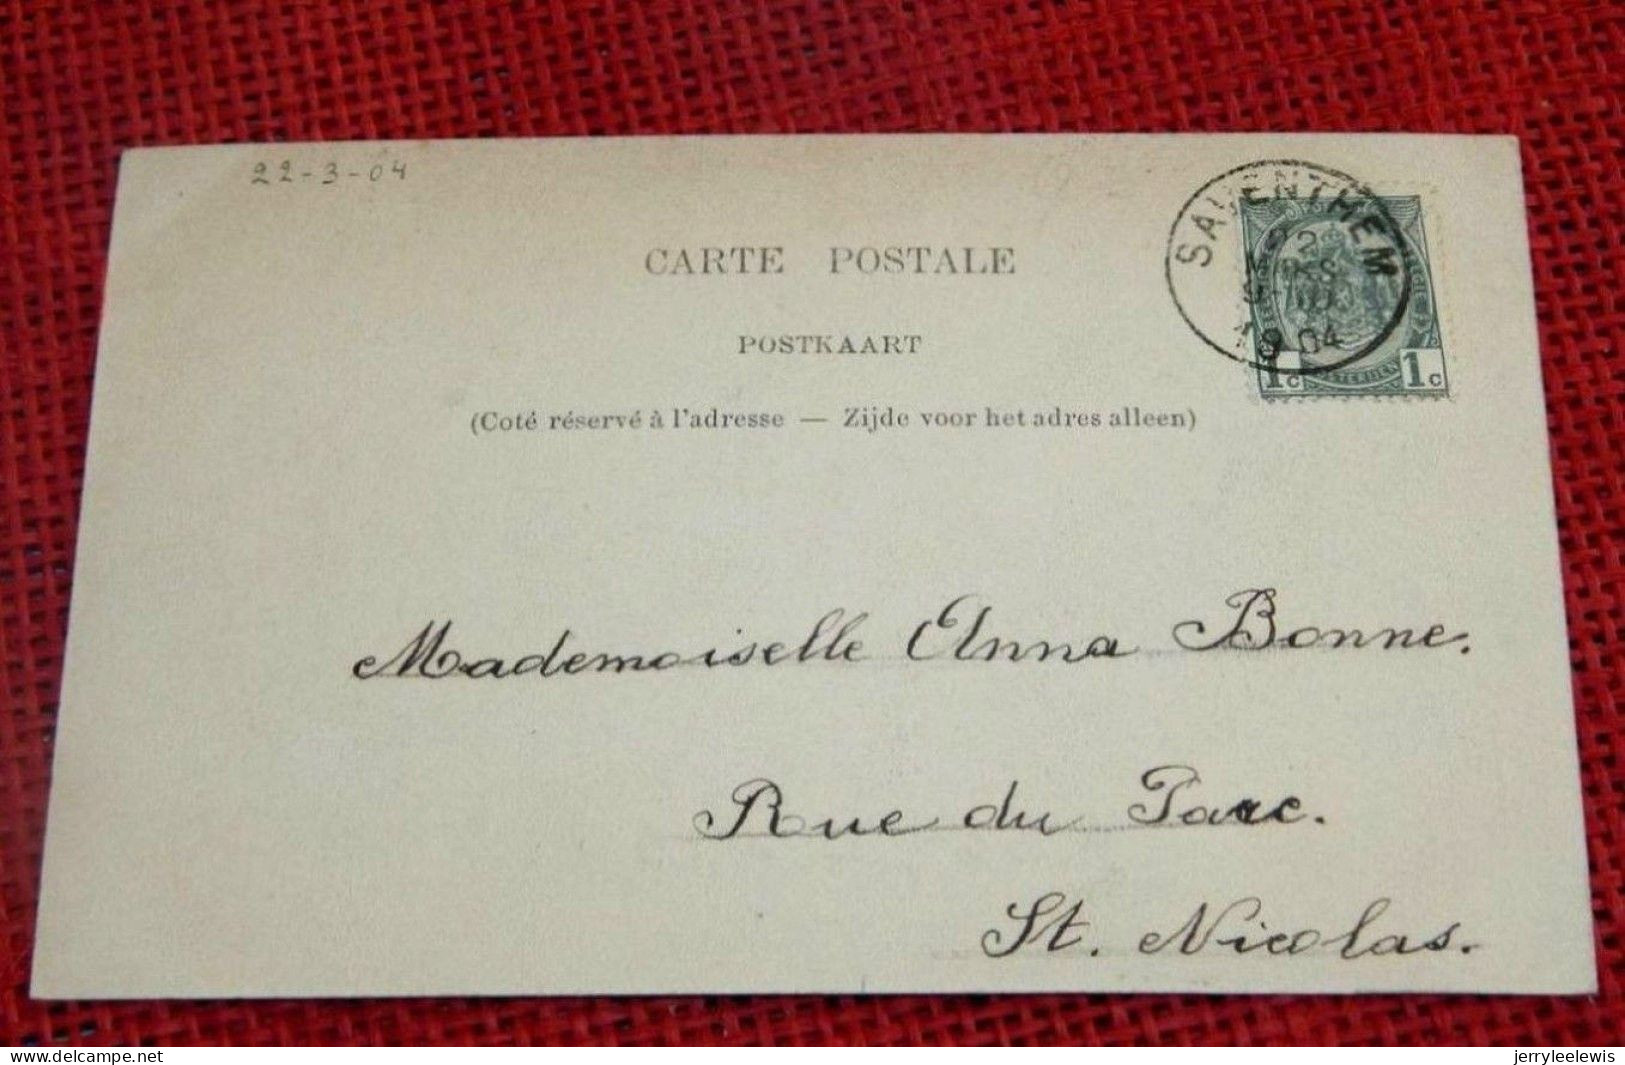 22-3-04
CARTE POSTALE
POSTKAART
(Coté réservé à l'adresse — Zijde voor het adres alleen)
SAVENTHEM
22
MARS
1904
1c 1c
Mademoiselle Anna Bonne.
Rue du Parc.
St. Nicolas.
delcampe.net
jerryleelewis